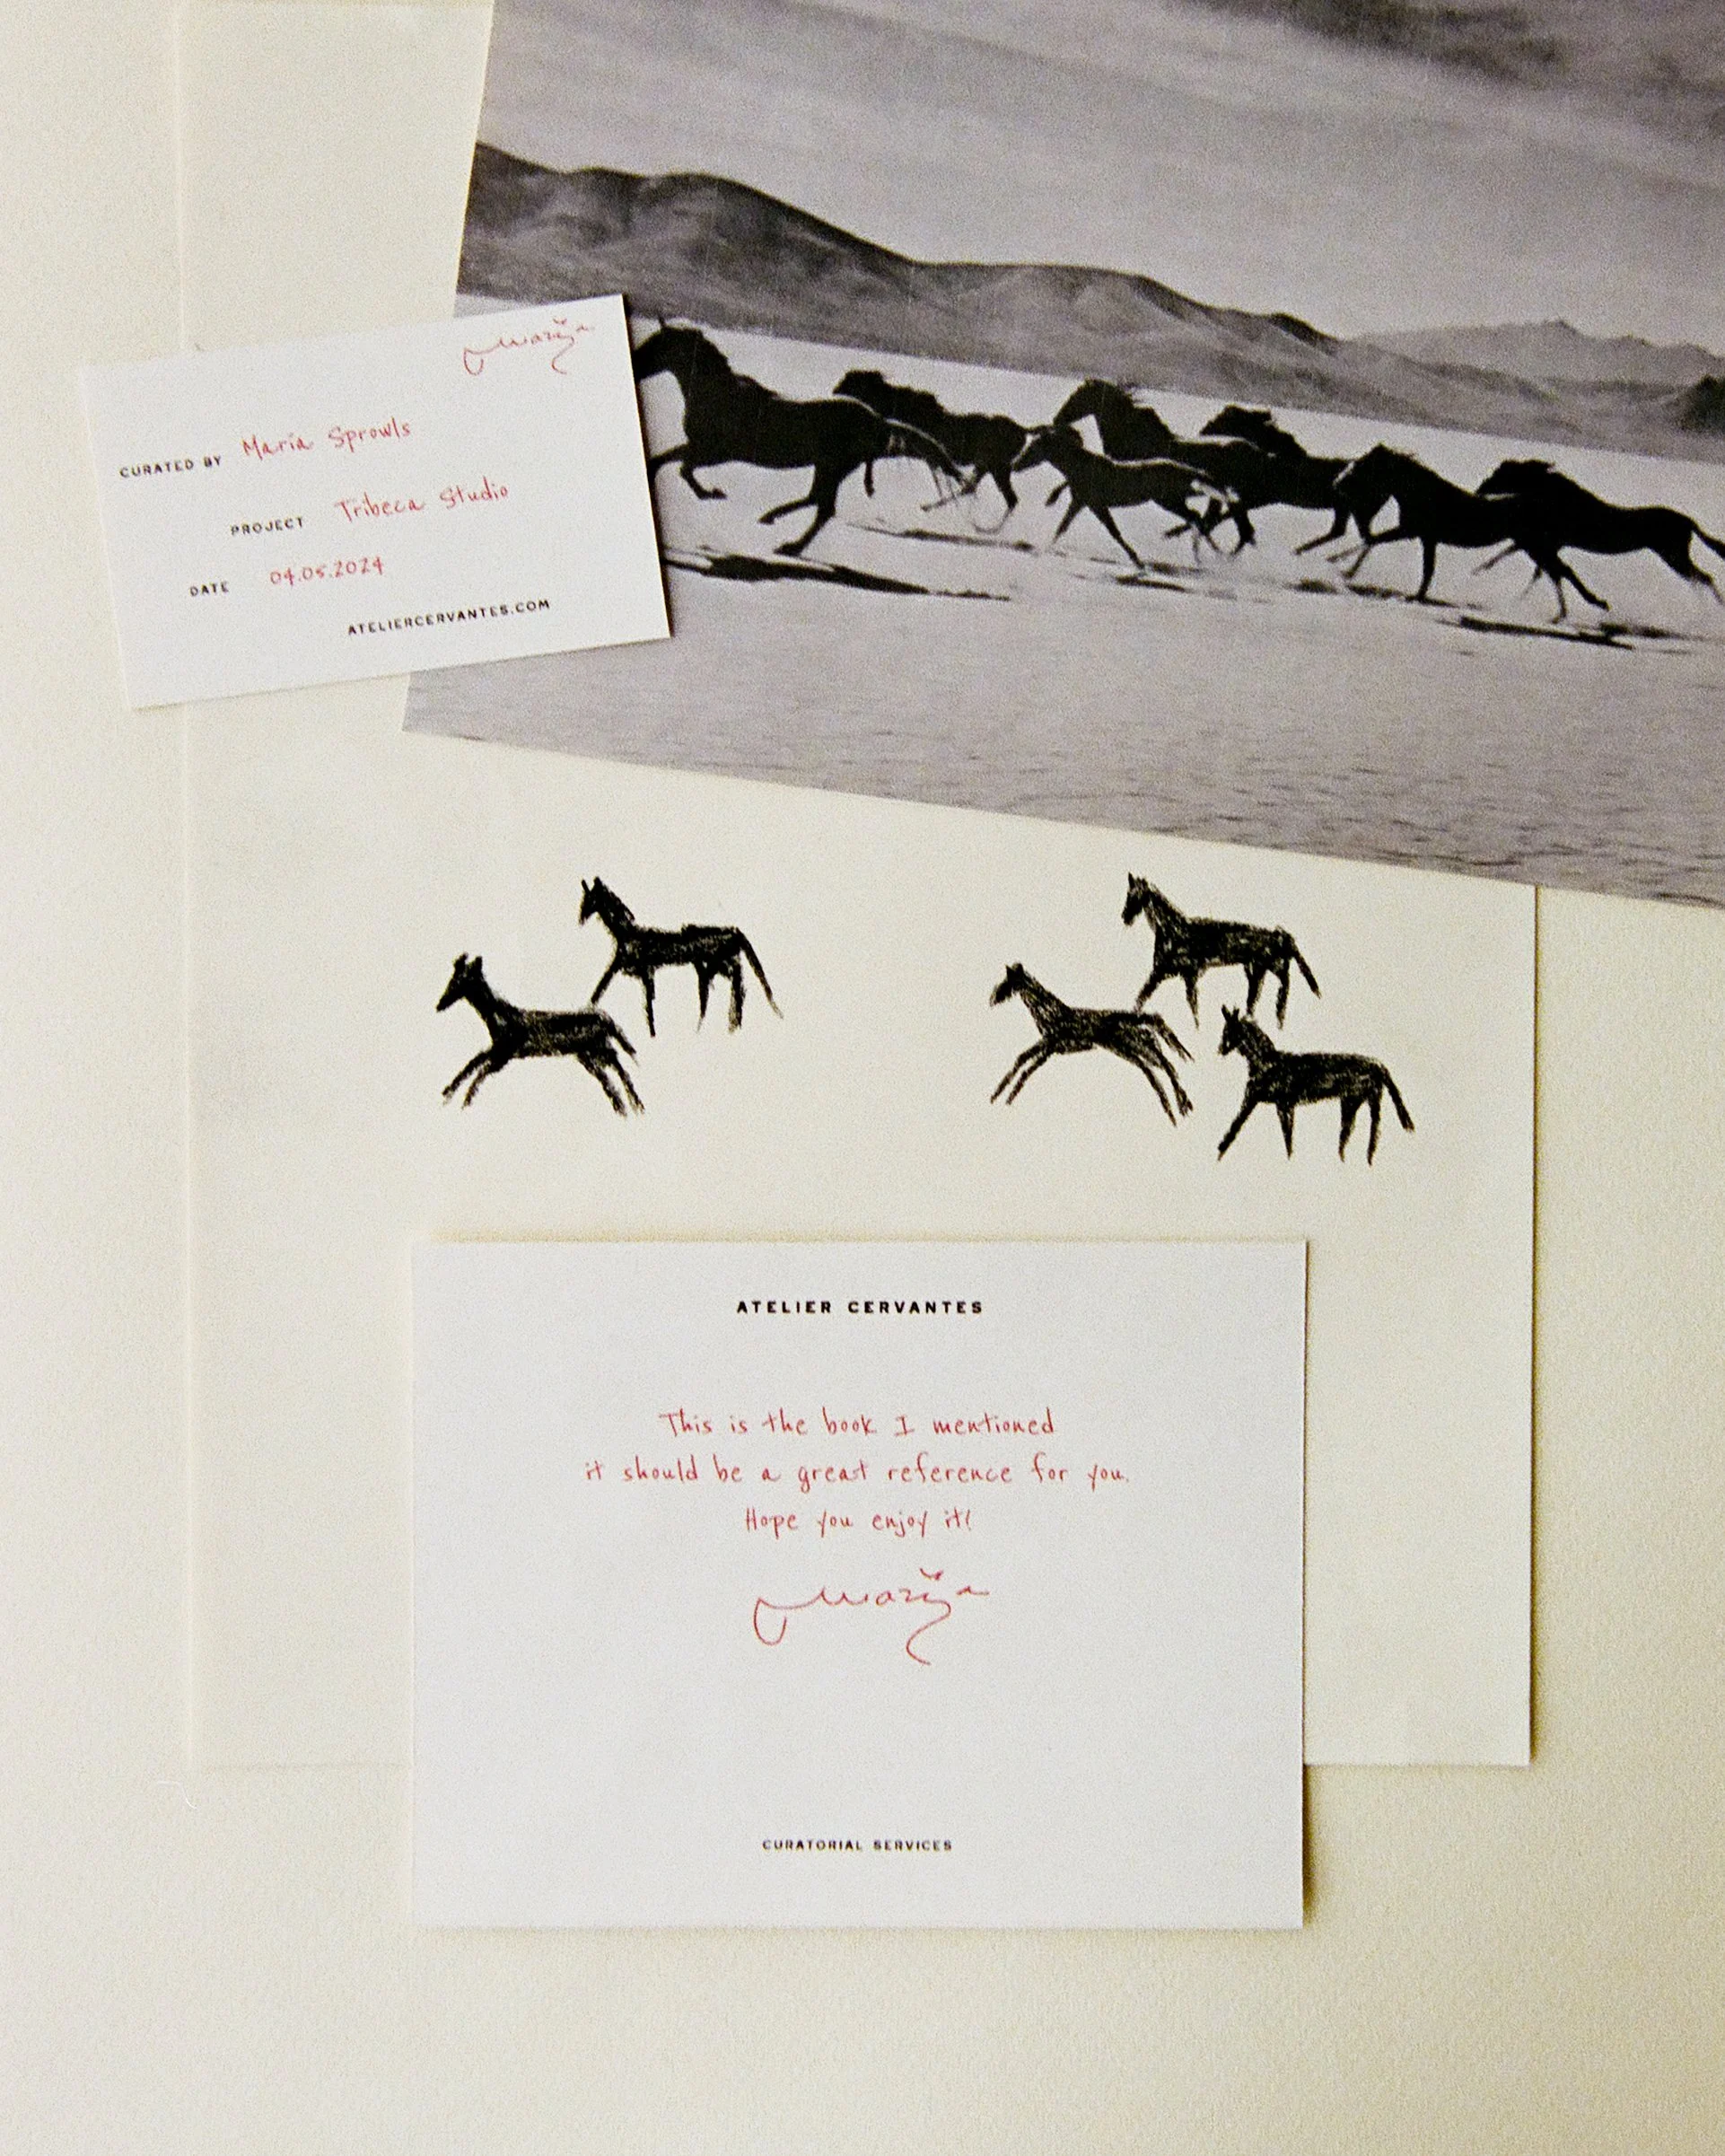 Marija
CURATED BY Maria Sprowls
PROJECT Tribeca Studio
DATE 04.05.2024
ATELIERCERVANTES.COM
ATELIER CERVANTES
This is the book I mentioned
it should be a great reference for you.
Hope you enjoy it!
Marija
CURATORIAL SERVICES